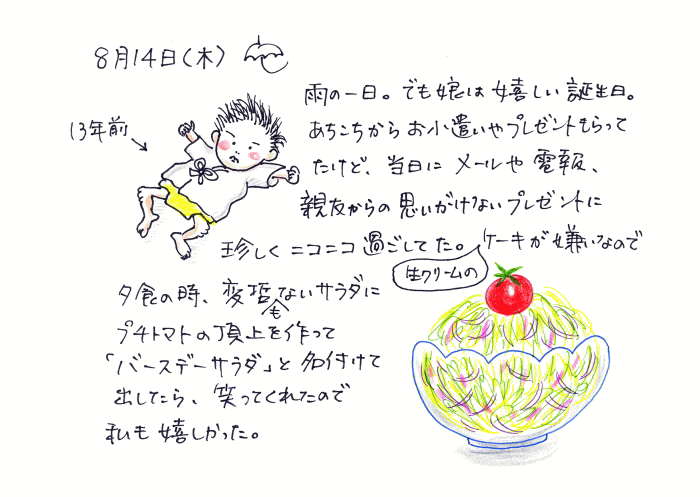 8月14日(木)
13年前
雨の一日。でも娘は嬉しい誕生日。
あちこちからお小遣いやプレゼントもらって
たけど、当日にメールや電報、
親友からの思いがけないプレゼントに
珍しくニコニコ過ごしてた。ケーキが嫌いなので
生クリームの
夕食の時、変哲ないサラダに
も
プチトマトの頂上を作って
「バースデーサラダ」と名付けて
出したら、笑ってくれたので
私も嬉しかった。